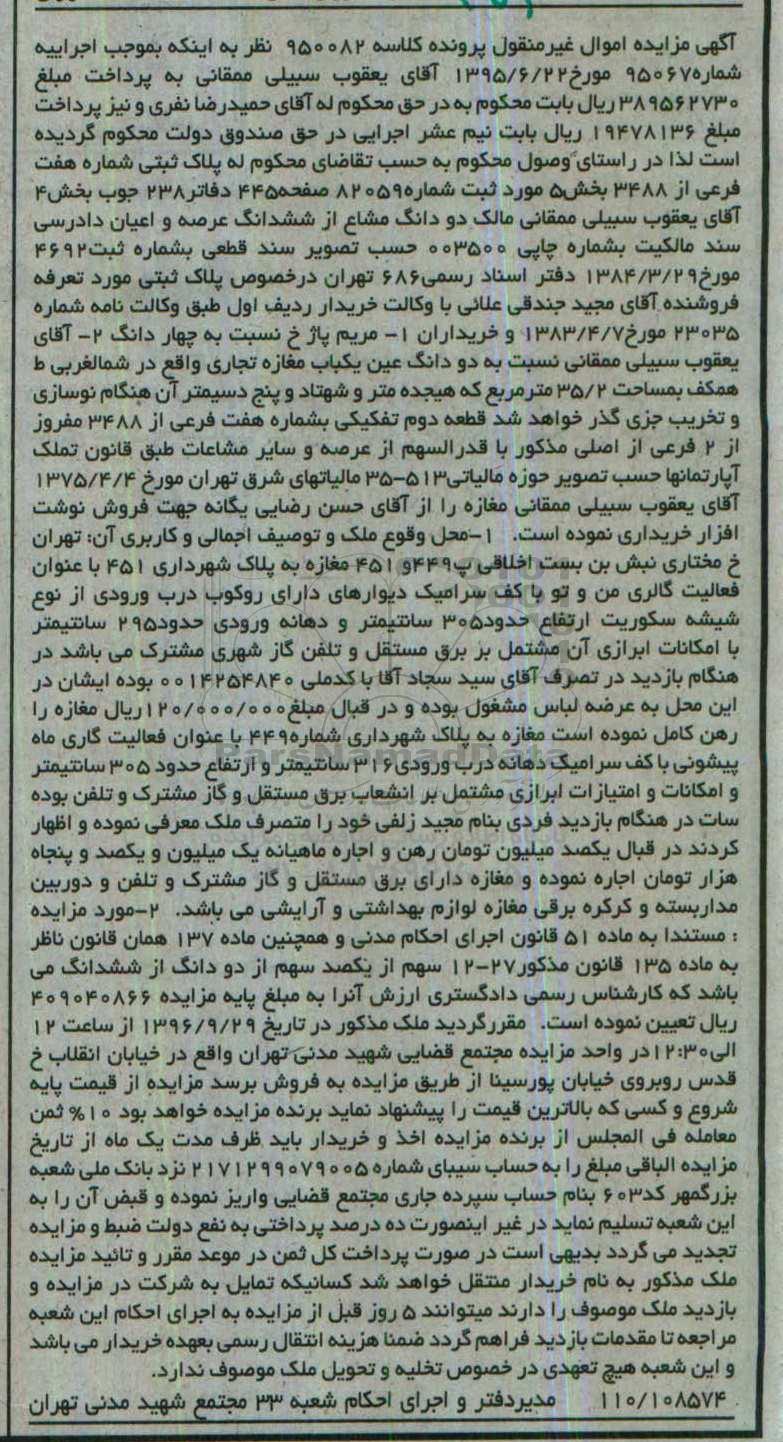 آگهی مزایده اموال غیرمنقول پرونده کلاسه ۹۵۰۰۸۲ نظر به اینکه بموجب اجراییه
شماره۹۵۰۶۷ مورخ۱۳۹۵/۶/۲۲ آقای یعقوب سبیلی ممقانی به پرداخت مبلغ
۳۸۹۵۶۲۷۳۰ ریال بابت محکوم به در حق محکوم له آقای حمیدرضا نفری و نیز پرداخت
مبلغ ۱۹۴۷۸۱۳۶ ریال بابت نیم عشر اجرایی در حق صندوق دولت محکوم گردیده
است لذا در راستای وصول محکوم به حسب تقاضای محکوم له پلاک ثبتی شماره هفت
فرعی از ۳۴۸۸ بخش۵ مورد ثبت شماره۸۲۰۵۹ صفحه۴۴۵ دفاتر۲۳۸ جوب بخش۴
آقای یعقوب سبیلی ممقانی مالک دو دانگ مشاع از ششدانگ عرصه و اعیان دادرسی
سند مالکیت بشماره چاپی ۰۰۳۵۰۰ حسب تصویر سند قطعی بشماره ثبت۴۶۹۲
مورخ۱۳۸۴/۳/۲۹ دفتر اسناد رسمی۶۸۶ تهران درخصوص پلاک ثبتی مورد تعرفه
فروشنده آقای مجید جندقی علائی با وکالت خریدار ردیف اول طبق وکالت نامه شماره
۲۳۰۳۵ مورخ۱۳۸۳/۴/۷ و خریداران ۱- مریم پاژ خ نسبت به چهار دانگ ۲- آقای
یعقوب سبیلی ممقانی نسبت به دو دانگ عین یکباب مغازه تجاری واقع در شمالغربی ط
همکف بمساحت ۳۵/۲ مترمربع که هیجده متر و شهتاد و پنج دسیمتر آن هنگام نوسازی
و تخریب جزی گذر خواهد شد قطعه دوم تفکیکی بشماره هفت فرعی از ۳۴۸۸ مفروز
از ۲ فرعی از اصلی مذکور با قدرالسهم از عرصه و سایر مشاعات طبق قانون تملک
آپارتمانها حسب تصویر حوزه مالیاتی۵۱۳-۳۵ مالیاتهای شرق تهران مورخ ۱۳۷۵/۴/۴
آقای یعقوب سبیلی ممقانی مغازه را از آقای حسن رضایی یگانه جهت فروش نوشت
افزار خریداری نموده است. ۱-محل وقوع ملک و توصیف اجمالی و کاربری آن: تهران
خ مختاری نبش بن بست اخلاقی پ۴۴۹و ۴۵۱ مغازه به پلاک شهرداری ۴۵۱ با عنوان
فعالیت گالری من و تو با کف سرامیک دیوارهای دارای روکوب درب ورودی از نوع
شیشه سکوریت ارتفاع حدود۳۰۵ سانتیمتر و دهانه ورودی حدود۲۹۵ سانتیمتر
با امکانات ابرازی آن مشتمل بر برق مستقل و تلفن گاز شهری مشترک می باشد در
هنگام بازدید در تصرف آقای سید سجاد آقا با کدملی ۰۰۱۴۲۵۴۸۴۰ بوده ایشان در
این محل به عرضه لباس مشغول بوده و در قبال مبلغ۱۲۰/۰۰۰/۰۰۰ریال مغازه را
رهن کامل نموده است مغازه به پلاک شهرداری شماره۴۴۹ با عنوان فعالیت گاری ماه
پیشونی با کف سرامیک دهانه درب ورودی۳۱۶ سانتیمتر و ارتفاع حدود ۳۰۵ سانتیمتر
و امکانات و امتیازات ابرازی مشتمل بر انشعاب برق مستقل و گاز مشترک و تلفن بوده
سات در هنگام بازدید فردی بنام مجید زلفی خود را متصرف ملک معرفی نموده و اظهار
کردند در قبال یکصد میلیون تومان رهن و اجاره ماهیانه یک میلیون و یکصد و پنجاه
هزار تومان اجاره نموده و مغازه دارای برق مستقل و گاز مشترک و تلفن و دوربین
مداربسته و کرکره برقی مغازه لوازم بهداشتی و آرایشی می باشد. ۲-مورد مزایده
: مستندا به ماده ۵۱ قانون اجرای احکام مدنی و همچنین ماده ۱۳۷ همان قانون ناظر
به ماده ۱۳۵ قانون مذکور۲۷-۱۲ سهم از یکصد سهم از دو دانگ از ششدانگ می
باشد که کارشناس رسمی دادگستری ارزش آنرا به مبلغ پایه مزایده ۴۰۹۰۴۰۸۶۶
ریال تعیین نموده است. مقررگردید ملک مذکور در تاریخ ۱۳۹۶/۹/۲۹ از ساعت ۱۲
الی۱۲:۳۰در واحد مزایده مجتمع قضایی شهید مدنی تهران واقع در خیابان انقلاب خ
قدس روبروی خیابان پورسینا از طریق مزایده به فروش برسد مزایده از قیمت پایه
شروع و کسی که بالاترین قیمت را پیشنهاد نماید برنده مزایده خواهد بود ۱۰% ثمن
معامله فی المجلس از برنده مزایده اخذ و خریدار باید ظرف مدت یک ماه از تاریخ
مزایده الباقی مبلغ را به حساب سیبای شماره ۲۱۷۱۲۹۹۰۷۹۰۰۵ نزد بانک ملی شعبه
بزرگمهر کد۶۰۳ بنام حساب سپرده جاری مجتمع قضایی واریز نموده و قبض آن را به
این شعبه تسلیم نماید در غیر اینصورت ده درصد پرداختی به نفع دولت ضبط و مزایده
تجدید می گردد بدیهی است در صورت پرداخت کل ثمن در موعد مقرر و تائید مزایده
ملک مذکور به نام خریدار منتقل خواهد شد کسانیکه تمایل به شرکت در مزایده و
بازدید ملک موصوف را دارند میتوانند ۵ روز قبل از مزایده به اجرای احکام این شعبه
مراجعه تا مقدمات بازدید فراهم گردد ضمنا هزینه انتقال رسمی بعهده خریدار می باشد
و این شعبه هیچ تعهدی در خصوص تخلیه و تحویل ملک موصوف ندارد.
۱۱۰/۱۰۸۵۷۴ مدیردفتر و اجرای احکام شعبه ۳۳ مجتمع شهید مدنی تهران